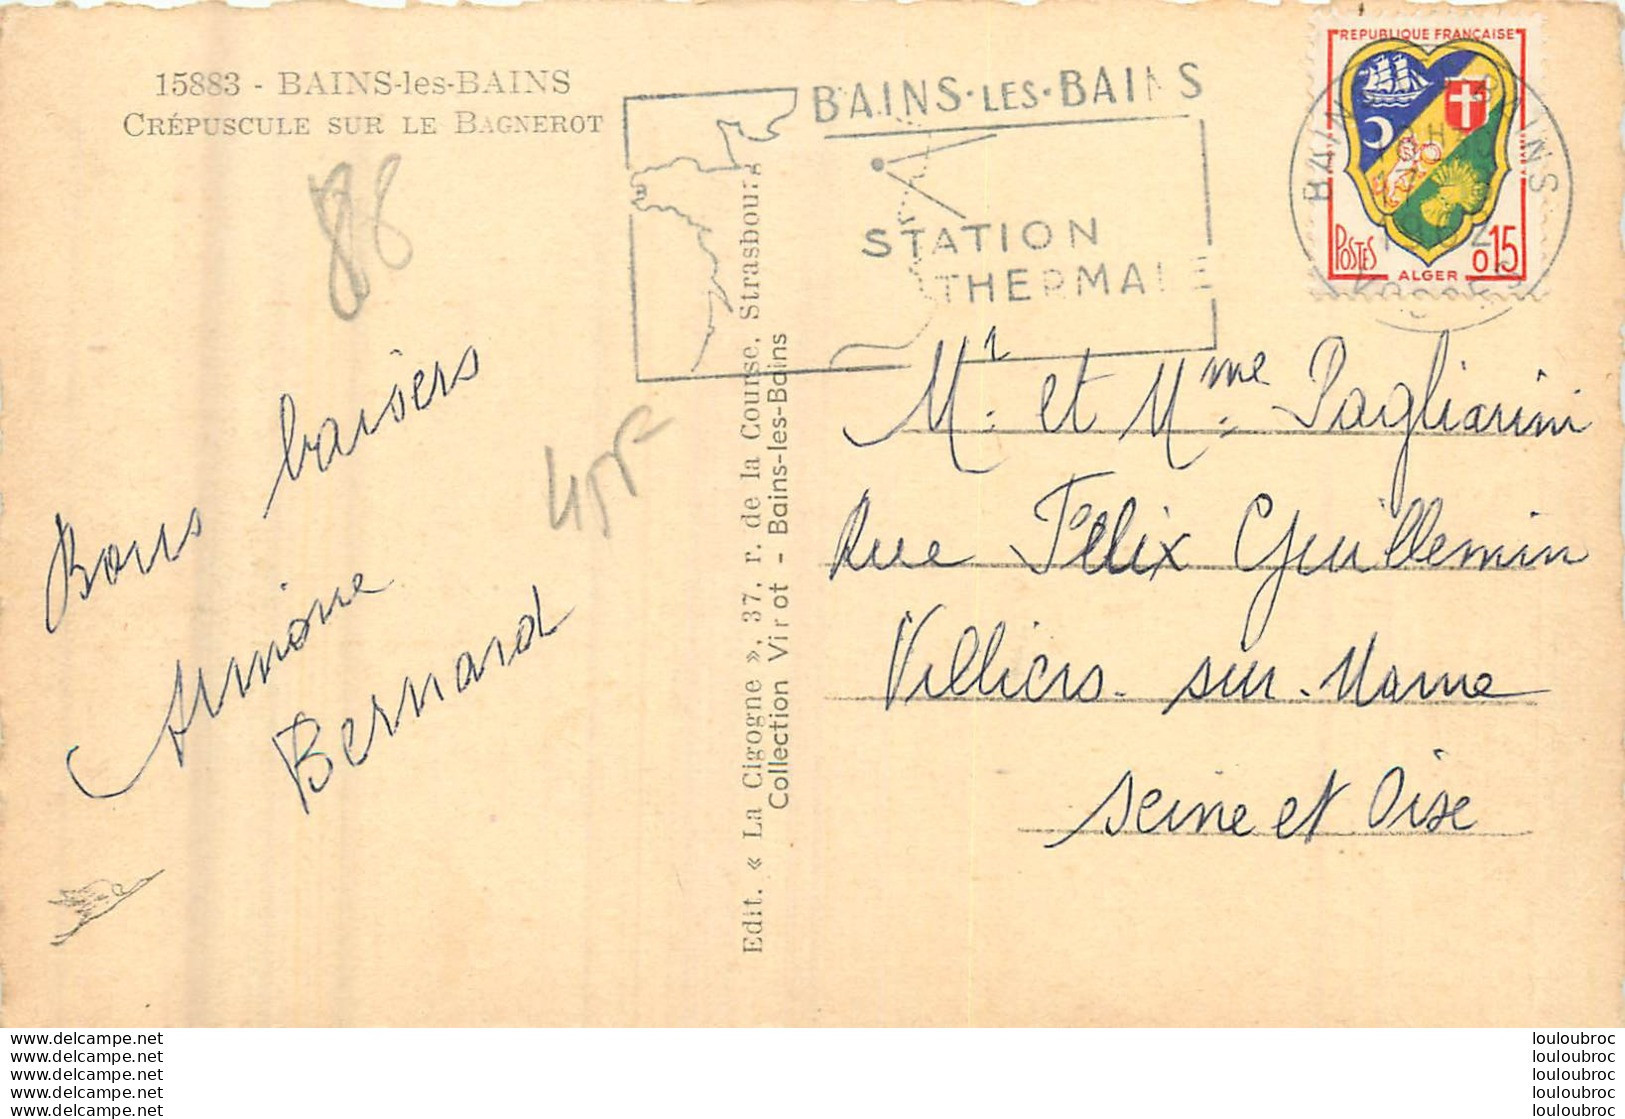 15883 - BAINS-les-BAINS
CRÉPUSCULE SUR LE BAGNEROT
88
45F
Bons baisers
Armione
Bernard
Edit. « La Cigogne », 37, r. de la Course, Strasbourg
Collection Virot - Bains-les-Bains
BAINS·LES·BAINS
STATION
THERMALE
REPUBLIQUE FRANÇAISE
POSTES
ALGER
0,15
BAINS LES BAINS
VOSGES
Mr. et Mme. Pagliarini
Rue Félix Guillemin
Villiers-sur-Marne
Seine et Oise
www.delcampe.net
www.delcampe.net
www.delcampe.net
www.delcampe.net
www.delcampe.net
louloubroc
louloubroc
louloubroc
louloubroc
louloubroc